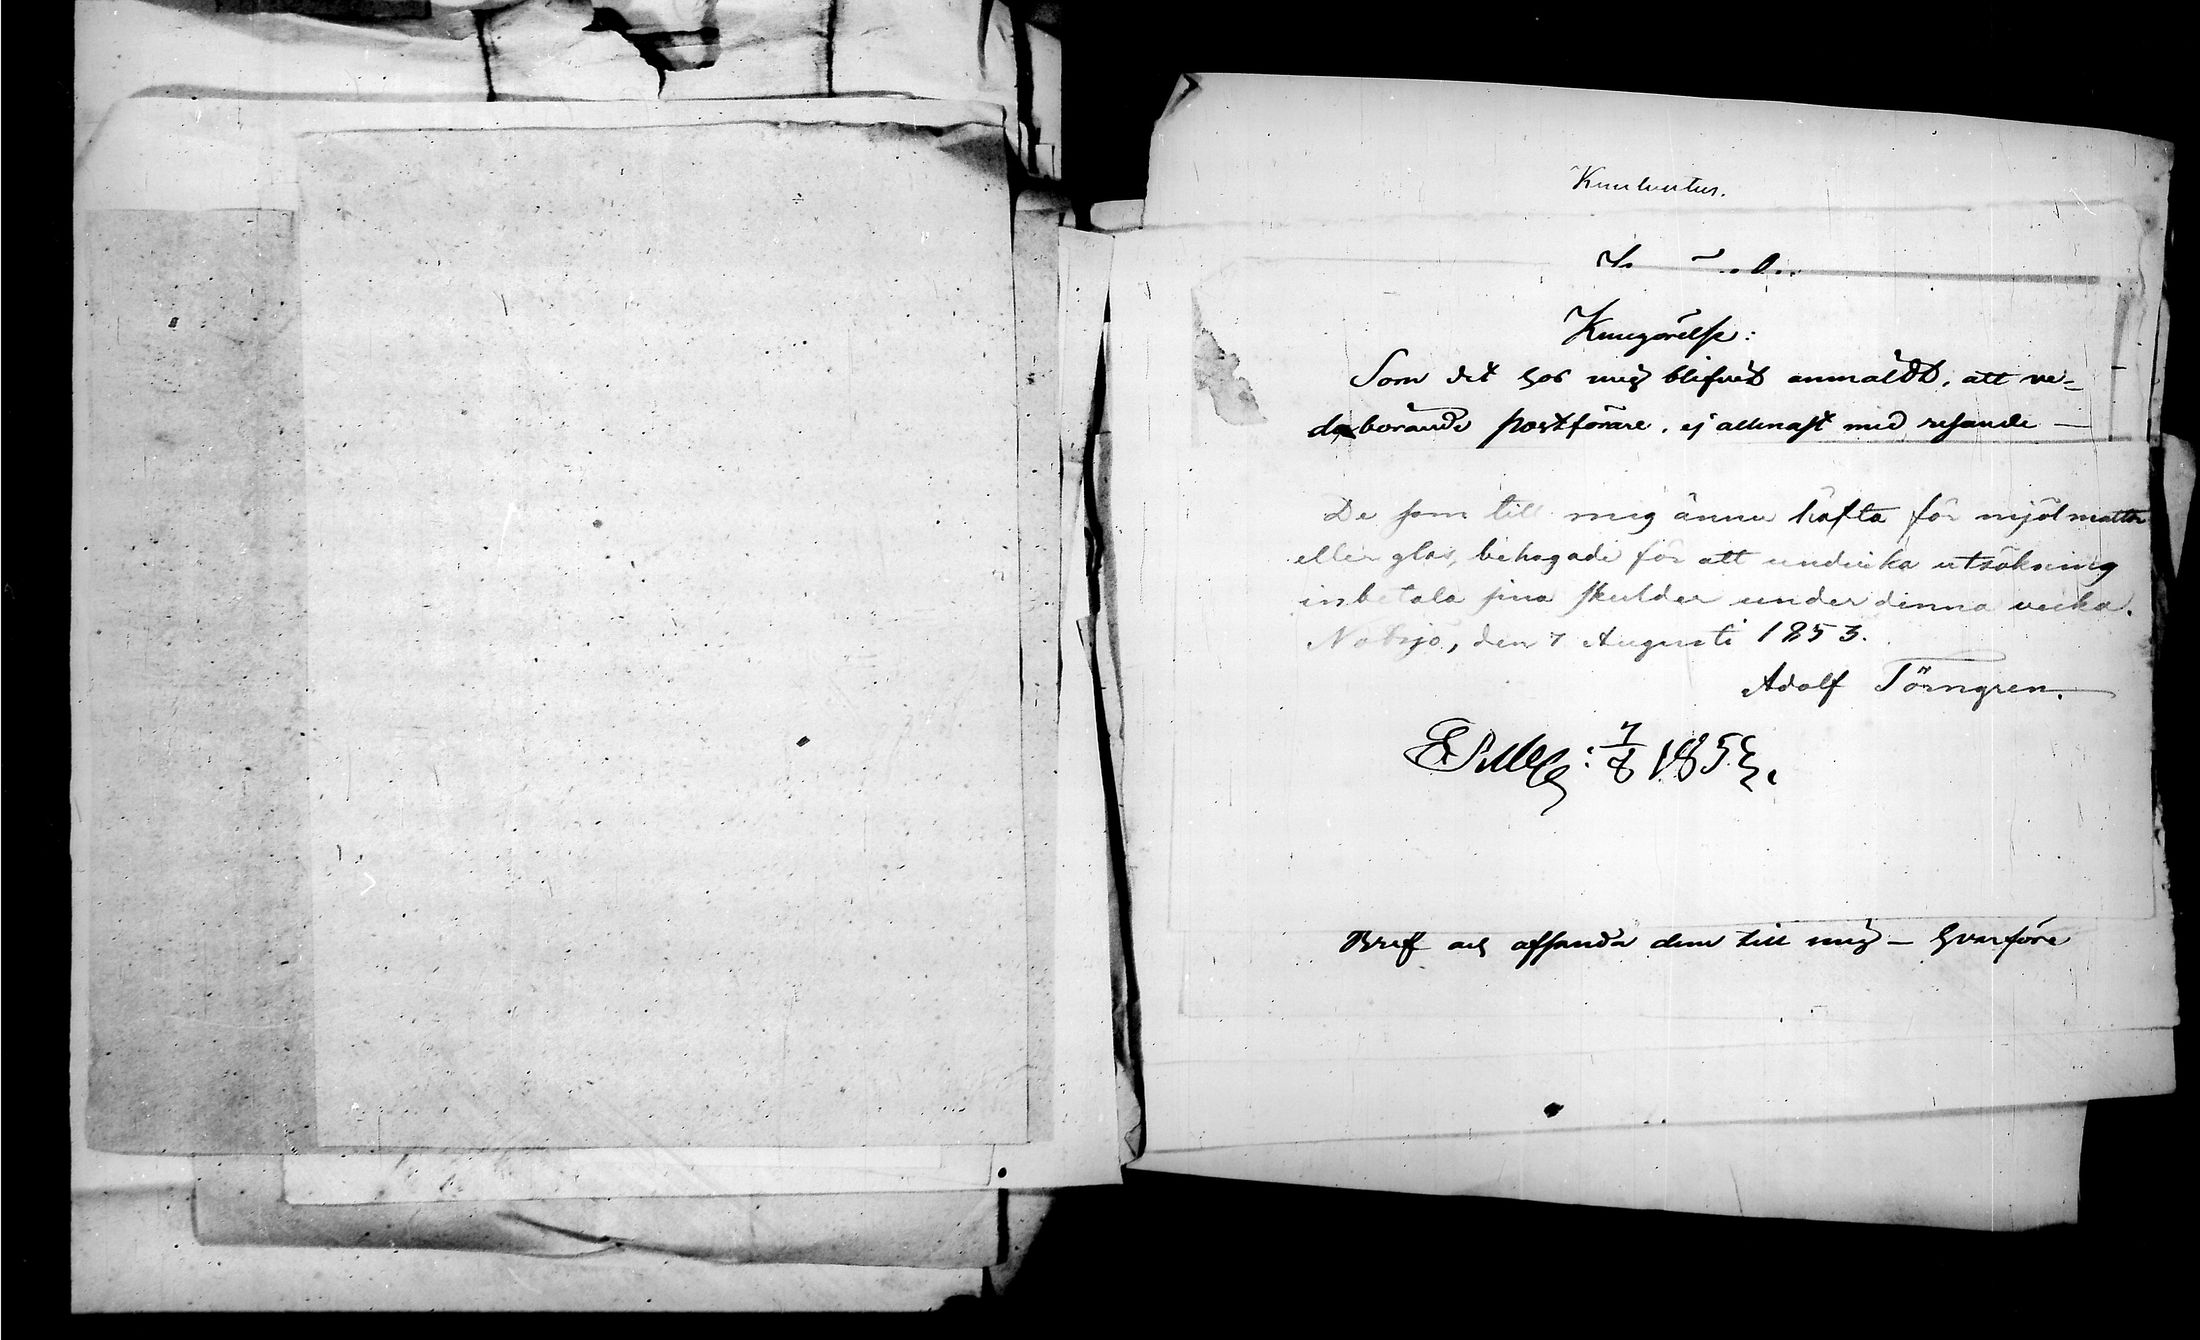 Kuulutus.
Kungörelse:
Som det hos mig blifvit anmäldt, att ve-
derbörande postförare, ej allenast med resande
De som till mig ännu häfta för mjölmattor
eller glas, behagade för att undvika utsökning
inbetala sina skulder under denna vecka.
Notsjö, den 7 Augusti 1853.
Adolf Törngren.
7/8 1853.
Bref och afsända dem till mig – hvarföre